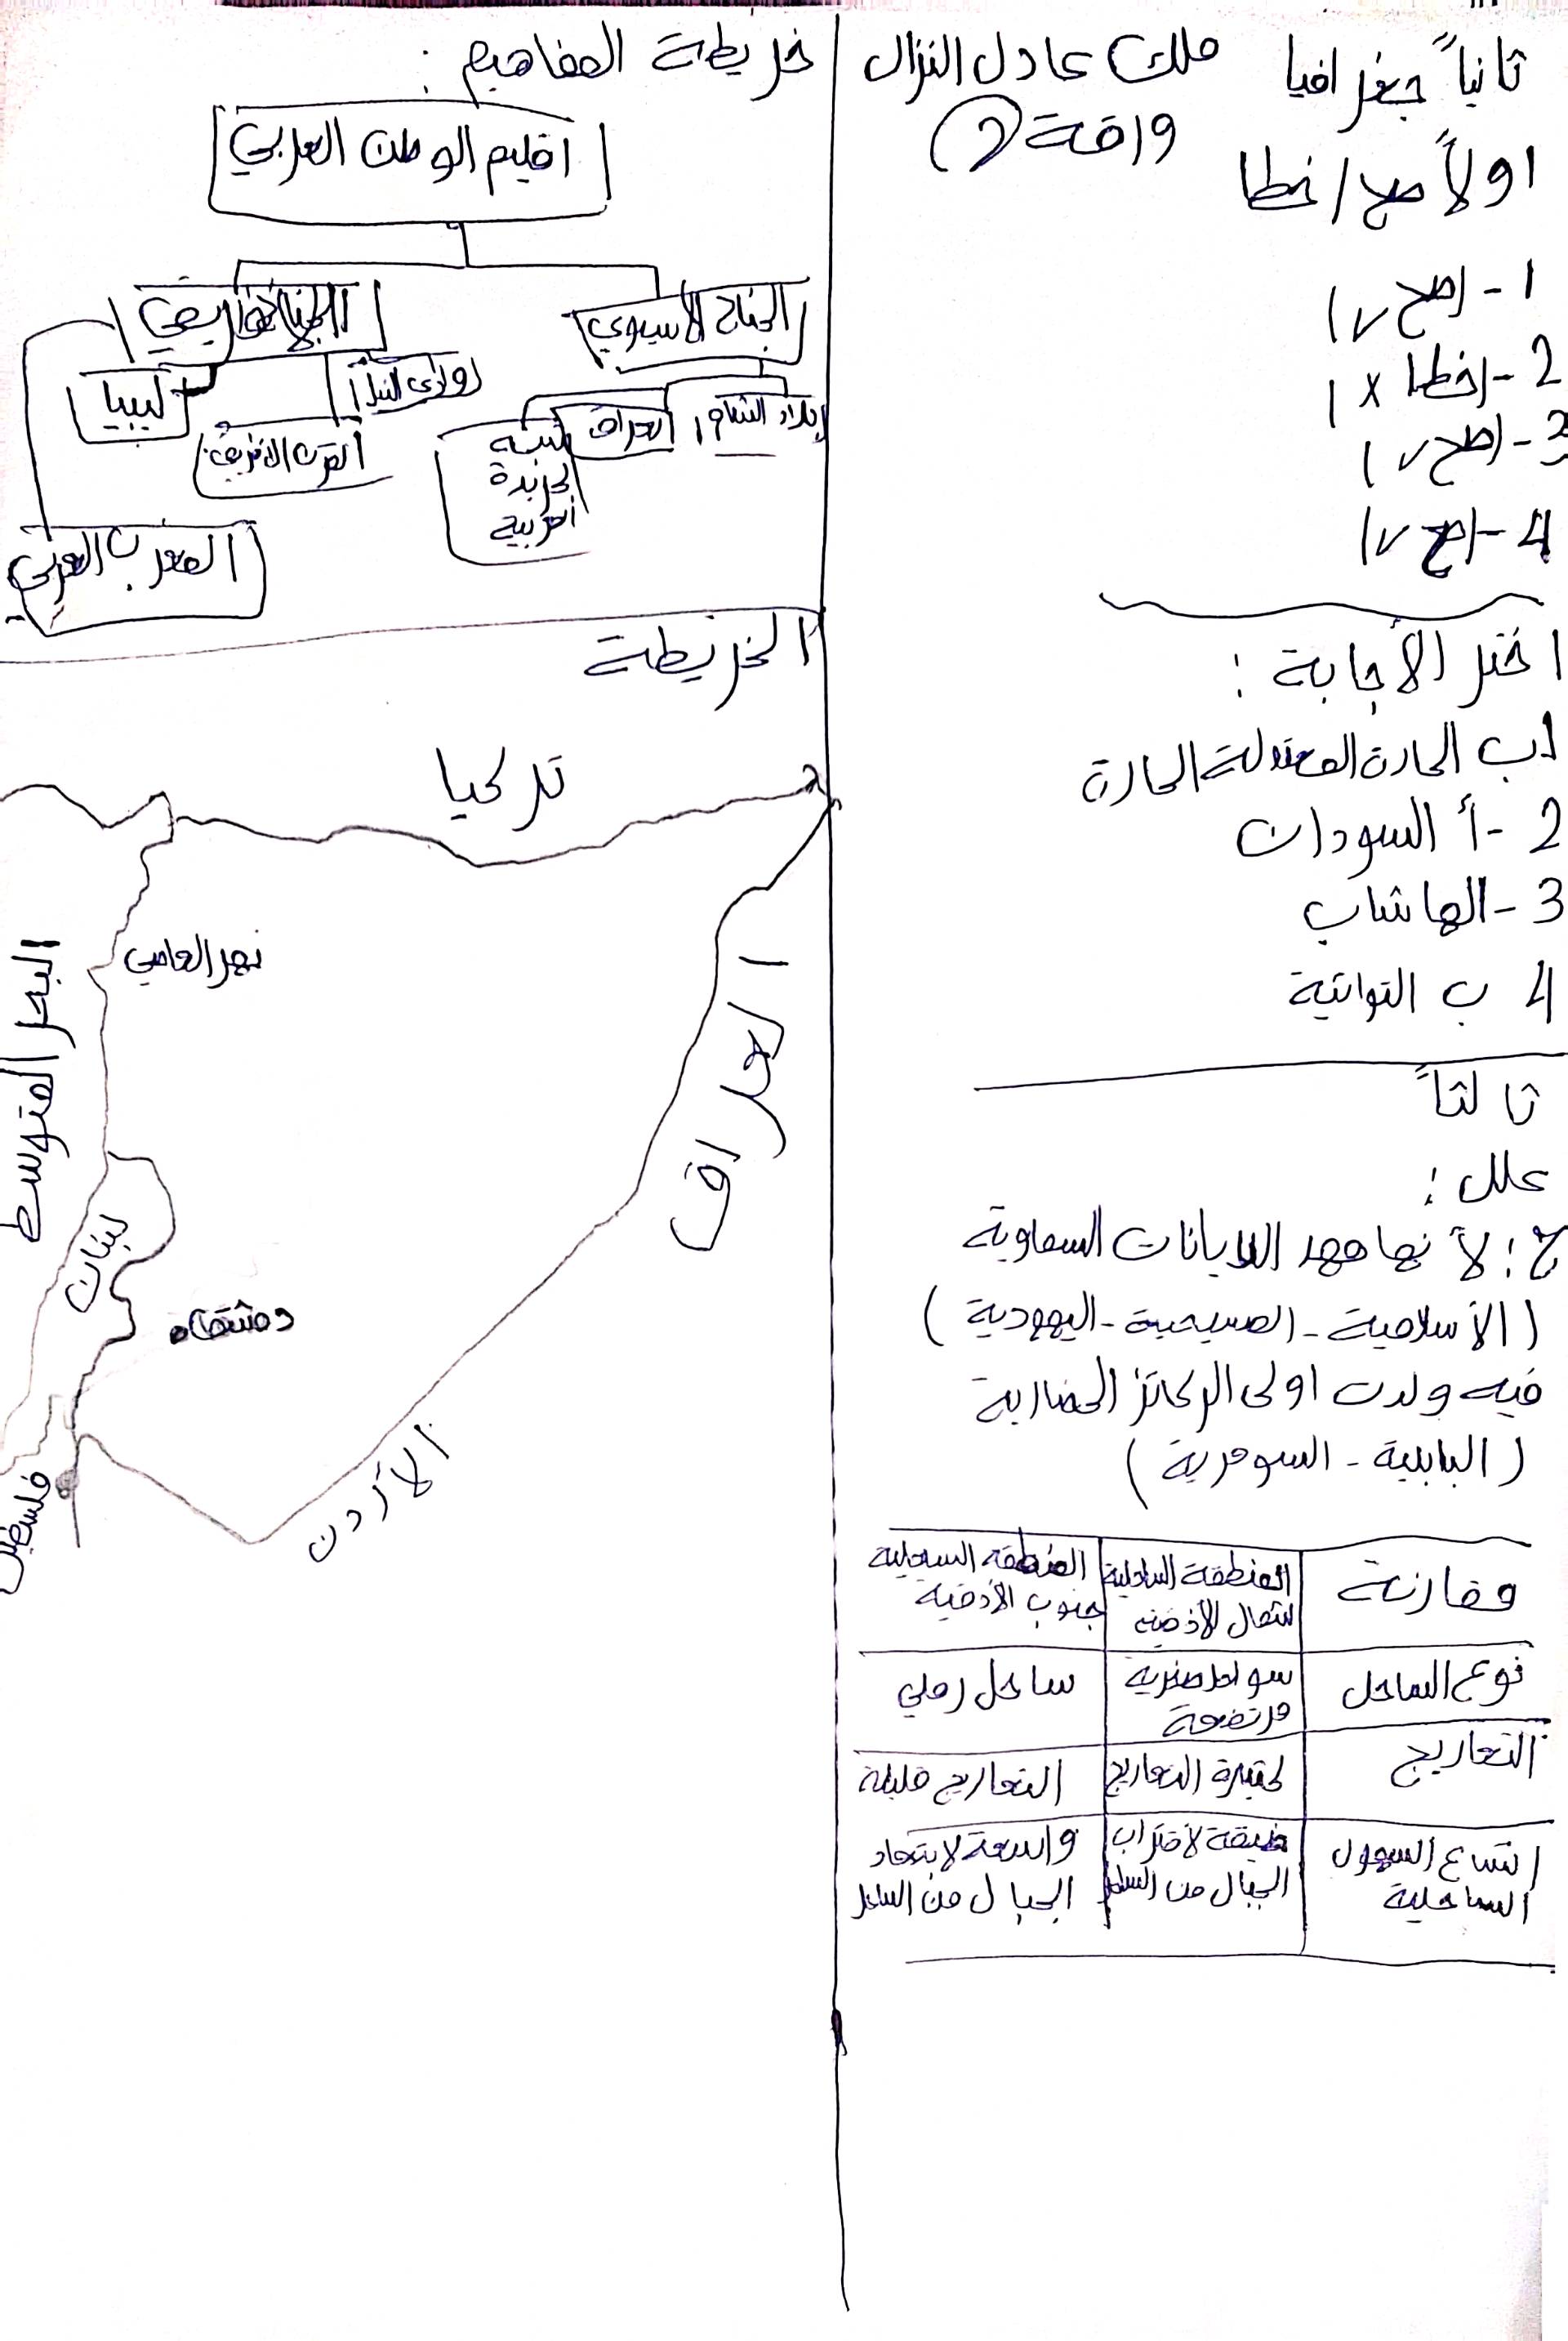 ثانياً جغرافيا
ملك عادل النزال
ورقة (2)
اولاً صح / خطا
1- (صح √)
2- (خطا x)
3- (صح √)
4- (صح √)
اختر الأجابة :
1ب الحارة المعتدلة الحارة
2- أ السودان
3- الهاشاب
4 ب التواتية
ثالثاً
علل :
ج: لأنها مهد الديانات السماوية
(الأسلامية - المسيحية - اليهودية)
فيه ولدت اولى الركائز الحضارية
(البابلية - السومرية)
مقارنة | المنطقة الساحلية شمال الأذقية | المنطقة الساحلية جنوب الأذقية
نوع الساحل | سواحل صخرية مرتفعة | ساحل رملي
التعاريج | كثيرة التعاريج | التعاريج قليلة
اتساع السهول الساحلية | ضيقة لأقتراب الجبال من الساحل | واسعة لابتعاد الجبال من الساحل
خريطة المفاهيم :
اقليم الوطن العربي
الجناح الأسيوي
الجناح الأفريقي
بلاد الشام
العراق
شبه
الجزيرة
العربية
وادي النيل
ليبيا
القرن الأفريقي
المغرب العربي
الخريطة
تركيا
نهر العاصي
البحر المتوسط
العراق
لبنان
دمشق
الأردن
فلسطين